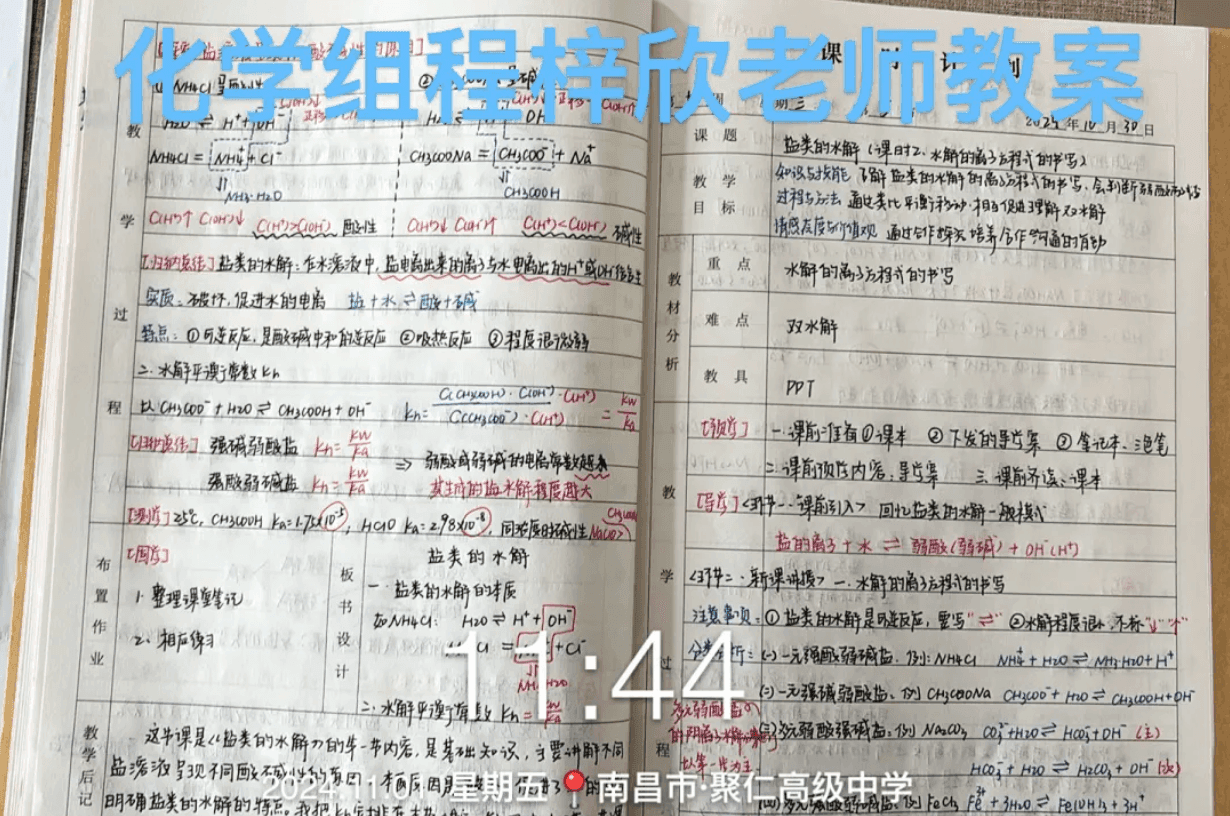 化学组程梓欣老师教案
NH4Cl = NH4+ + Cl-
NH3·H2O
CH3COONa = CH3COO- + Na+
CH3COOH
C(H+)↑ C(OH-)↓ C(H+)>C(OH-) 酸性
C(H+)↓ C(OH-)↑ C(H+)<C(OH-) 碱性
[归纳总结] 盐类的水解：在水溶液中，盐电离出来的离子与水电离出的H+或OH-
实质：破坏、促进水的电离 盐+水⇌酸+碱
特点：①可逆反应，是酸碱中和的逆反应 ②吸热反应 ③程度很微弱
二、水解平衡常数Kh
以CH3COO- + H2O ⇌ CH3COOH + OH- Kh = C(CH3COOH)·C(OH-)·C(H+) / C(CH3COO-)·C(H+) = Kw/Ka
[归纳总结] 强碱弱酸盐 Kh = Kw/Ka
强酸弱碱盐 Kh = Kw/Ka
⇒ 弱酸或弱碱的电离常数越
其生成的盐水解程度越大
[测评] 25℃, CH3COOH Ka=1.75×10-5, HClO Ka=2.98×10-8, 同浓度时碱性 CH3COONa NaClO
教学过程
布置作业
[固学]
1. 整理课堂笔记
2. 相应练习
板书设计
盐类的水解
一、盐类的水解的本质
如NH4Cl: H2O ⇌ H+ + OH-
+Cl-
二、水解平衡常数 Kh = Kw/Ka
教学后记
这节课是《盐类的水解》的第一节内容，是基础知识，主要讲解不同
盐溶液呈现不同酸碱性的原因
明确盐类的水解的特点。
课 计 划
周 星期三
年10月30日
课题 盐类的水解（课时2、水解的离子方程式的书写）
教学目标
知识与技能 了解盐类的水解的离子方程式的书写，会判断
过程与方法 通过类比平衡移动、相互促进理解双水解
情感态度与价值观 通过合作探究培养合作沟通的
教材分析
重点 水解的离子方程式的书写
难点 双水解
教具 PPT
教学过程
[预学] 一、课前准备①课本 ②下发的导学案 ③笔记本、三色笔
二、课前预习内容：导学案 三、课前齐读：课本
[导学] <环节一：课前引入> 回忆盐类的水解一般模式
盐的离子+水 ⇌ 弱酸(弱碱) + OH-(H+)
<环节二：新课讲授> 一、水解的离子方程式的书写
注意事项：①盐类的水解是可逆反应，要写"⇌" ②水解程度很小，不标"↓""↑"
分类分析：(一)一元强酸弱碱盐，例：NH4Cl NH4+ + H2O ⇌ NH3·H2O + H+
(二)一元强碱弱酸盐，例 CH3COONa CH3COO- + H2O ⇌ CH3COOH + OH-
多元弱酸盐的
以第一步为主
(三)多元弱酸强碱盐：例 Na2CO3 CO32- + H2O ⇌ HCO3- + OH- (主)
HCO3- + H2O ⇌ H2CO3 + OH- (次)
(四)多元弱碱强酸盐，例 FeCl3 Fe3+ + 3H2O ⇌ Fe(OH)3 + 3H+
11:44
星期五 南昌市·聚仁高级中学